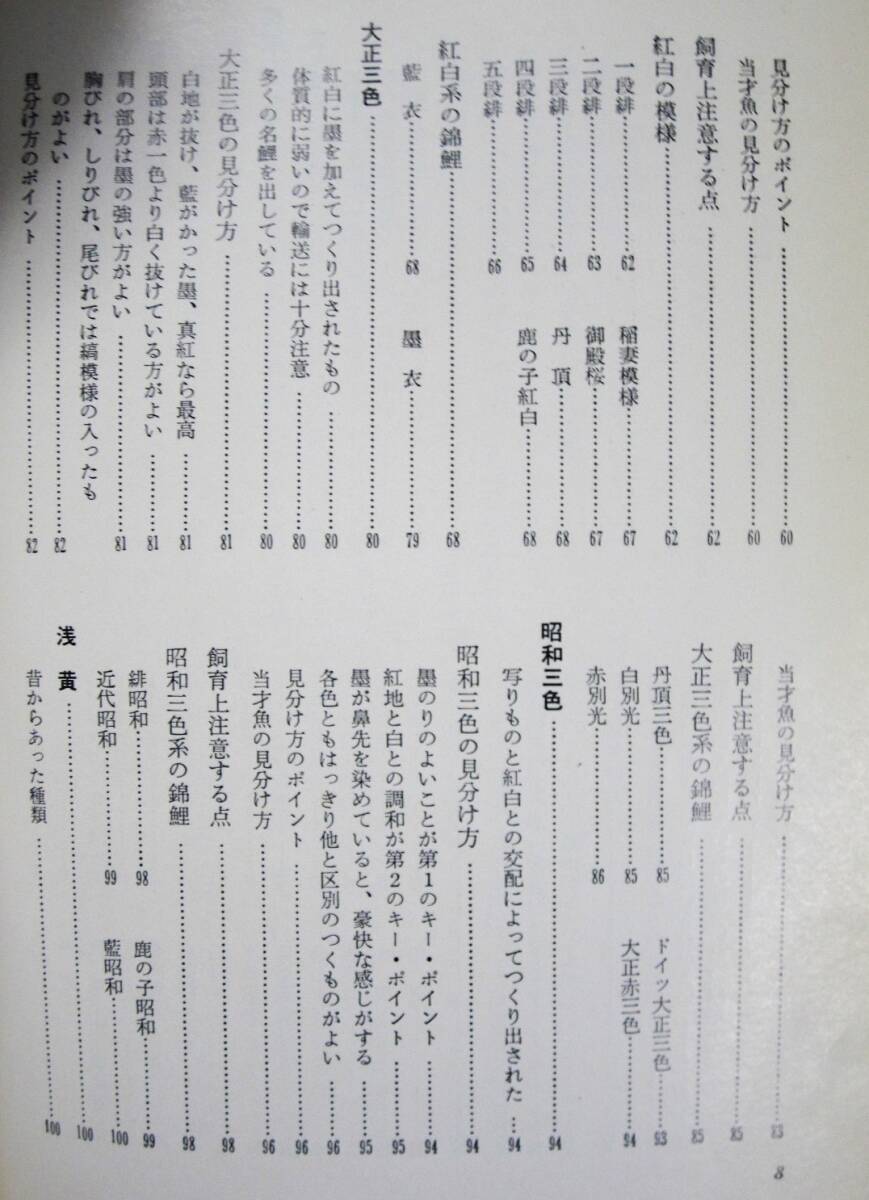 見分け方のポイント……60
当才魚の見分け方……60
飼育上注意する点……62
紅白の模様……62
一段緋……62
稲妻模様……67
二段緋……63
御殿桜……67
三段緋……64
丹　頂……68
四段緋……65
鹿の子紅白……68
五段緋……66
紅白系の錦鯉……68
藍　衣……68
墨　衣……79
大正三色……80
紅白に墨を加えてつくり出されたもの……80
体質的に弱いので輸送には十分注意……80
多くの名鯉を出している……80
大正三色の見分け方……81
白地が抜け、藍がかった墨、真紅なら最高……81
頭部は赤一色より白く抜けている方がよい……81
肩の部分は墨の強い方がよい……81
胸びれ、しりびれ、尾びれでは縞模様の入ったも
のがよい……82
見分け方のポイント……82
当才魚の見分け方……83
飼育上注意する点……85
大正三色系の錦鯉……85
丹頂三色……85
ドイツ大正三色……93
白別光……85
大正赤三色……94
赤別光……86
昭和三色……94
写りものと紅白との交配によってつくり出された…94
昭和三色の見分け方……94
墨のりのよいことが第1のキー・ポイント……94
紅地と白との調和が第2のキー・ポイント……95
墨が鼻先を染めていると、豪快な感じがする……95
各色ともはっきり他と区別のつくものがよい……96
見分け方のポイント……96
当才魚の見分け方……96
飼育上注意する点……98
昭和三色系の錦鯉……98
緋昭和……98
鹿の子昭和……99
近代昭和……99
藍昭和……100
浅　黄……100
昔からあった種類……100
8